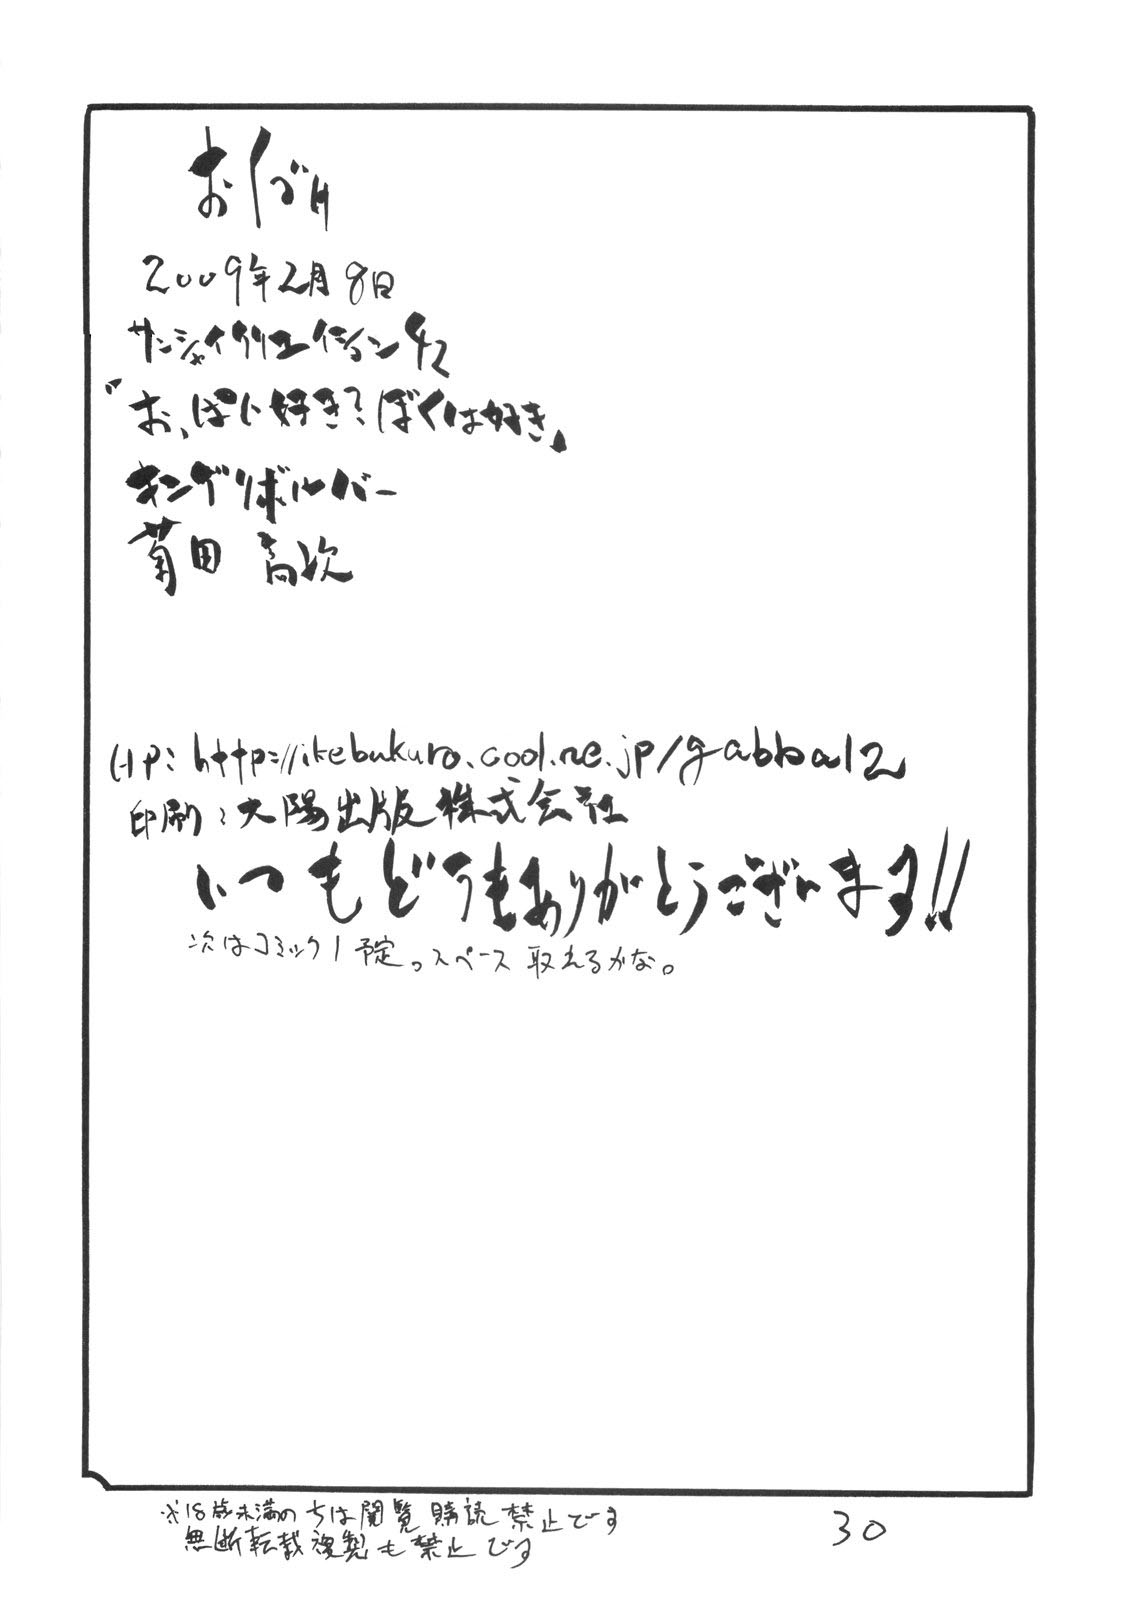 おくづけ
2009年2月8日
サンシャインクリエイション42
『おっぱい好き?ぼくは好き』
キングリボルバー
菊田 高次
HP: http://ikebukuro.cool.ne.jp/gabba12
印刷:大陽出版株式会社
いつもどうもありがとうございまする!!
次はコミック1予定。スペース取れるかな。
※18歳未満の方は閲覧購読禁止です
無断転載複製も禁止です
30